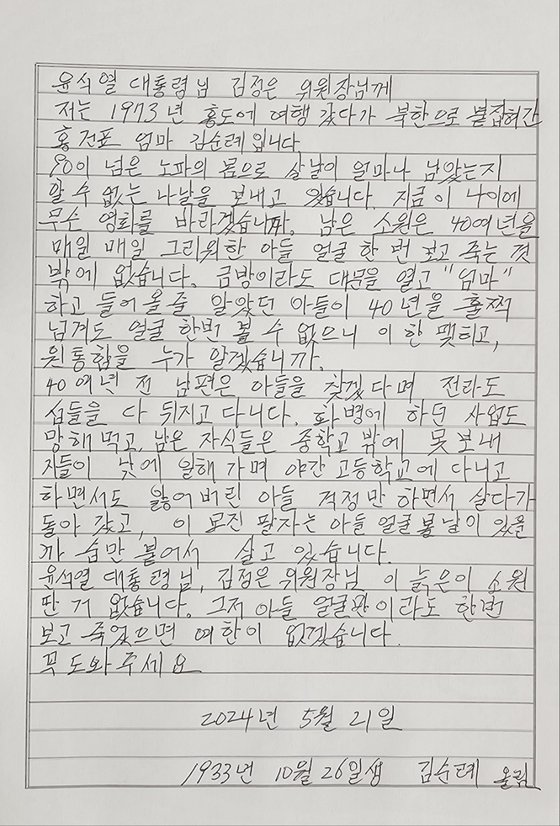 윤석열 대통령님 김정은 위원장님께
저는 1973년 홍도에 여행 갔다가 북한으로 붙잡혀간
홍건표 엄마 김순례입니다
90이 넘은 노파의 몸으로 살날이 얼마나 남았는지
알 수 없는 나날을 보내고 있습니다. 지금 이 나이에
무슨 영화를 바라겠습니까. 남은 소원은 40여년을
매일 매일 그리워한 아들 얼굴 한 번 보고 죽는 것
밖에 없습니다. 금방이라도 대문을 열고 "엄마"
하고 들어올줄 알았던 아들이 40년을 훌쩍
넘겨도 얼굴 한번 볼 수 없으니 이 한 맺히고,
원통함을 누가 알겠습니까.
40여년 전 남편은 아들을 찾겠다며 전라도
섬들을 다 뒤지고 다니다. 화병에 하던 사업도
망해먹고, 남은 자식들은 중학교 밖에 못보내
자들이 낮에 일해가며 야간 고등학교에 다니고
하면서도 잃어버린 아들 걱정만 하면서 살다가
돌아 갔고, 이 모진 팔자는 아들 얼굴 볼날이 있을
까 숨만 붙어서 살고 있습니다.
윤석열 대통령님, 김정은 위원장님 이 늙은이 소원
딴 거 없습니다. 그저 아들 얼굴 이라도 한번
보고 죽었으면 여한이 없겠습니다.
꼭 도와주세요
2024년 5월 21일
1933년 10월 26일생 김순례 올림